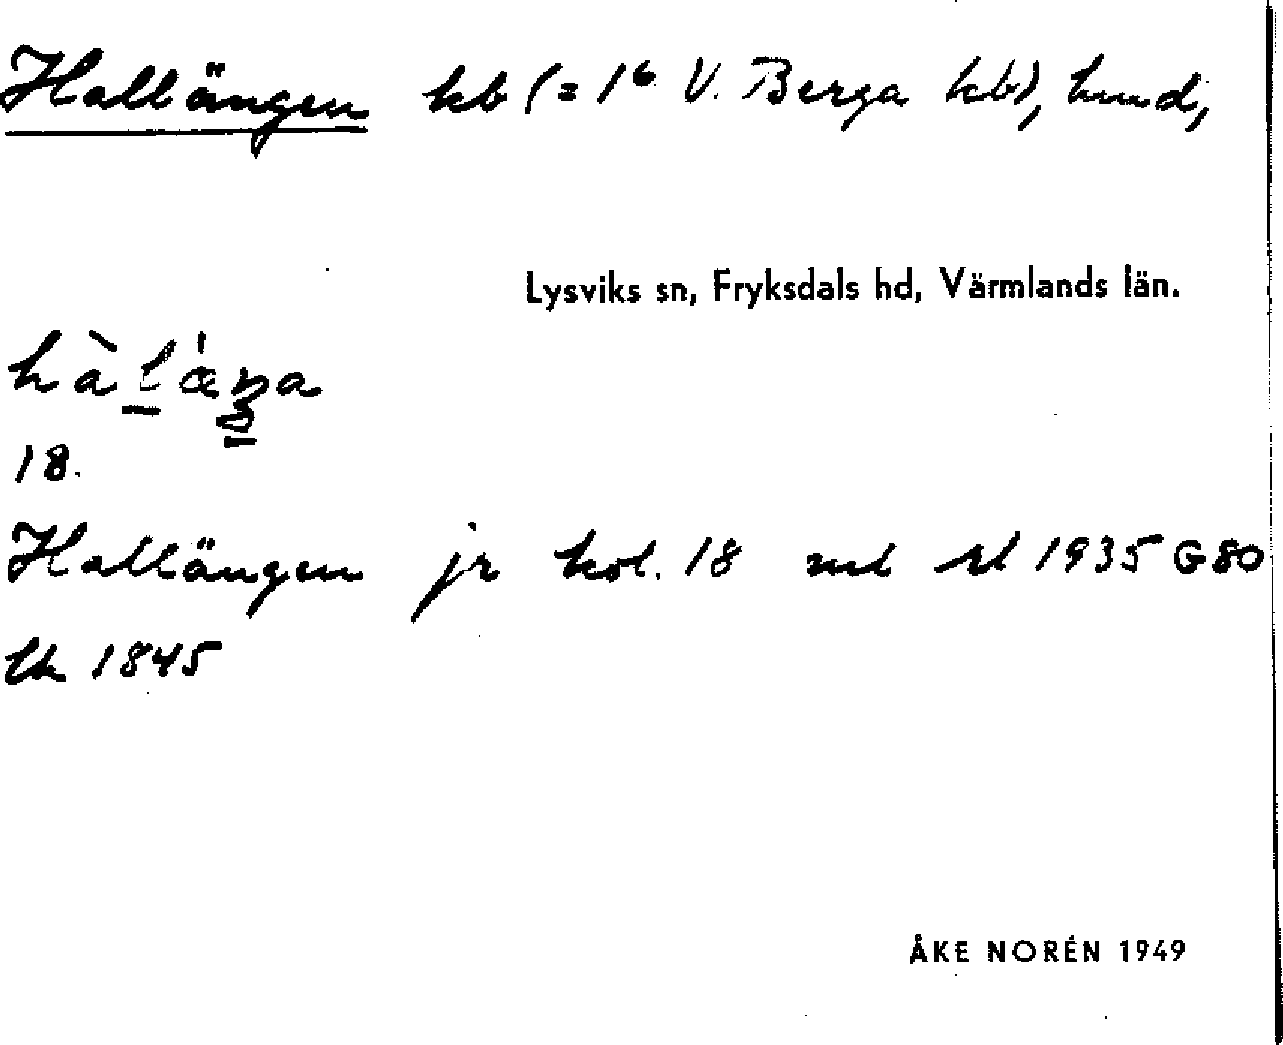 Hallängen kb (= 1⁶ V. Berga kb), hmd,
Lysviks sn, Fryksdals hd, Värmlands län.
18.
Hallängen jr kol. 18 ml rl 1935 G80
lk 1845
ÅKE NORÉN 1949